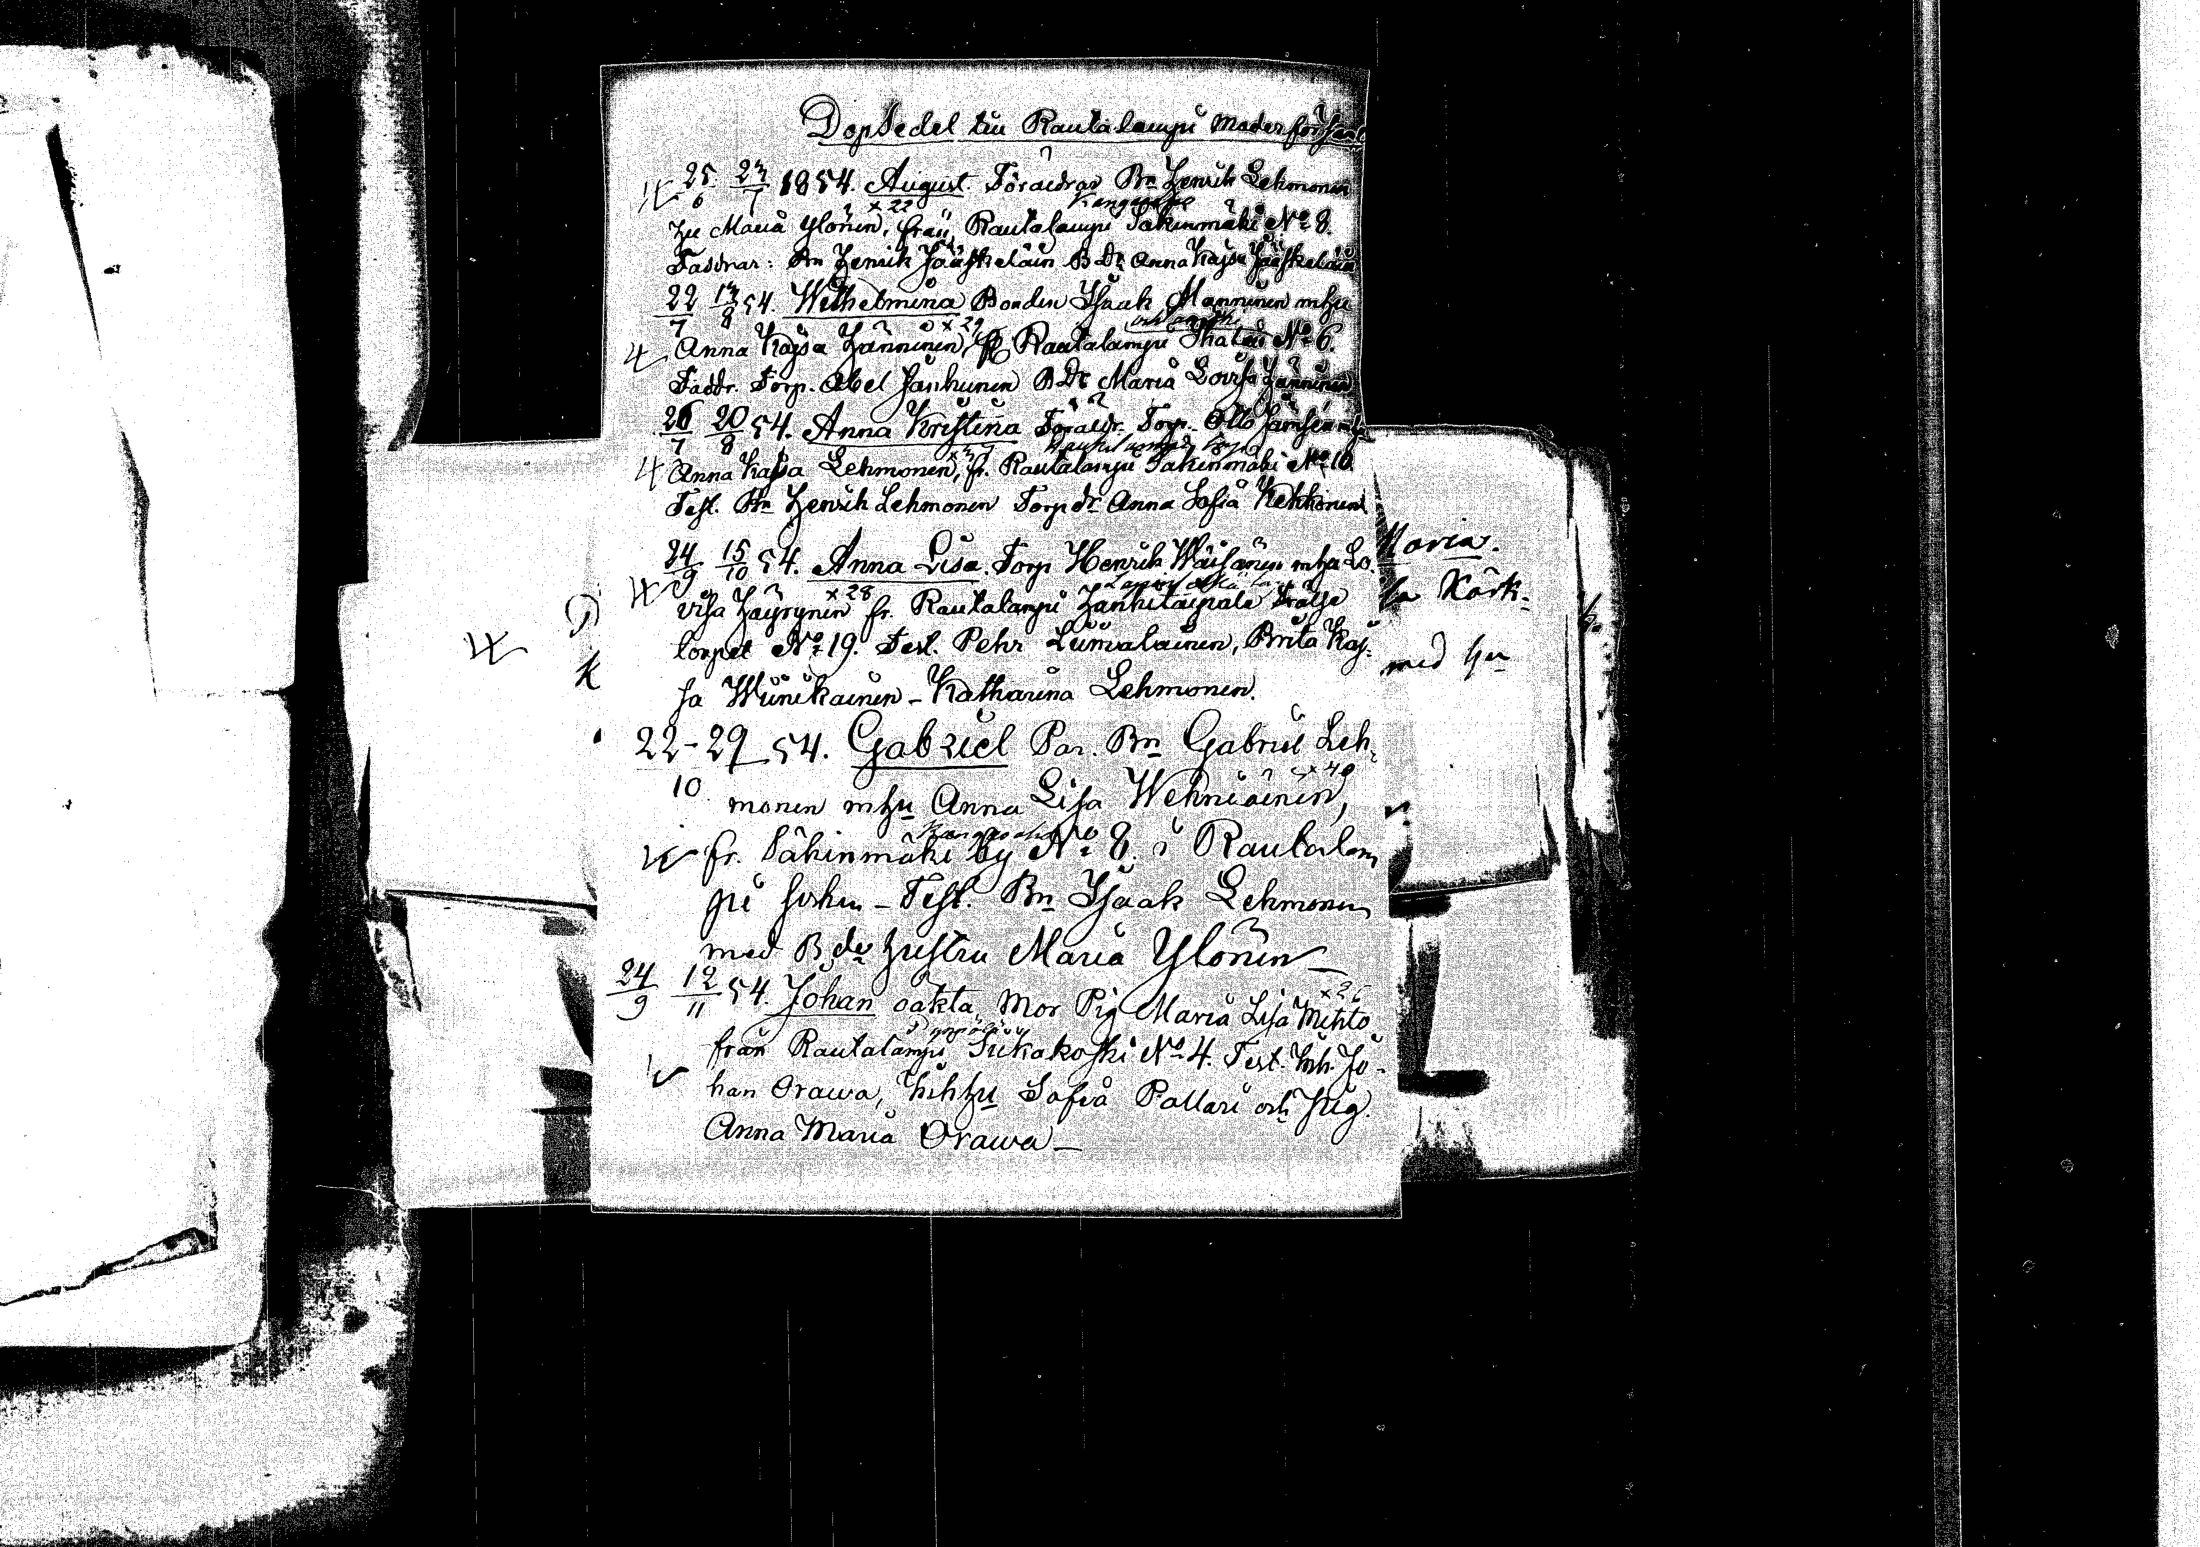 Dopsedel till Rautalampi Moderförsaml
25/6 23/7 1854. August. Föräldrar Bn Henrik Lehmonen
x 22 Kangasaho
Hu Maria Ylönen, från Rautalampi Säkinmäki No 8.
Faddrar: Bn Henrik Jääskeläin B Dr Anna Kajsa Jääskeläin
22/7 13/8 54. Wilhelmina Bonden Isaak Manninen mhu
x 29
Anna Kajsa Hänninen, fr Rautalampi No 6.
Faddr. Torp. Abel Janhunen B Dr Maria Lovisa Hänninen
26/7 20/8 54. Anna Kristina Föräldr. Torp. Otto Jämsén mhu
Anna Kajsa Lehmonen, fr. Rautalampi Säkinmäki No 10
Test. Bn Henrik Lehmonen Torp dr Anna Sofia Kekkonen
24/9 15/10 54. Anna Lisa. Torp Henrik Wäisänen mhu Lo.
x 28
visa Häyrynen fr. Rautalampi Hankitaipale frälse
torpet No 19. Test. Pehr Liimalainen, Brita Kaj-
sa Wiinikainen - Katharina Lehmonen.
22-29/10 54. Gabriel Par. Bn Gabriel Leh-
x 40
monen mhu Anna Lisa Wehniäinen,
Kangasaho
fr. Säkinmäki by No 8. i Rautalam
pi socken - Test. Bn Isaak Lehmonen
med B de hustru Maria Ylönen -
24/9 12/11 54. Johan oäkta, Mor Pig Maria Lisa Mehto
x 25
från Rautalampi Sukakoski No 4. Test. Inh. Jo-
han Orawa, Inhhu Sofia Pallari och Pig.
Anna Maria Orawa -
Maria.
sa Kärk-
med hu